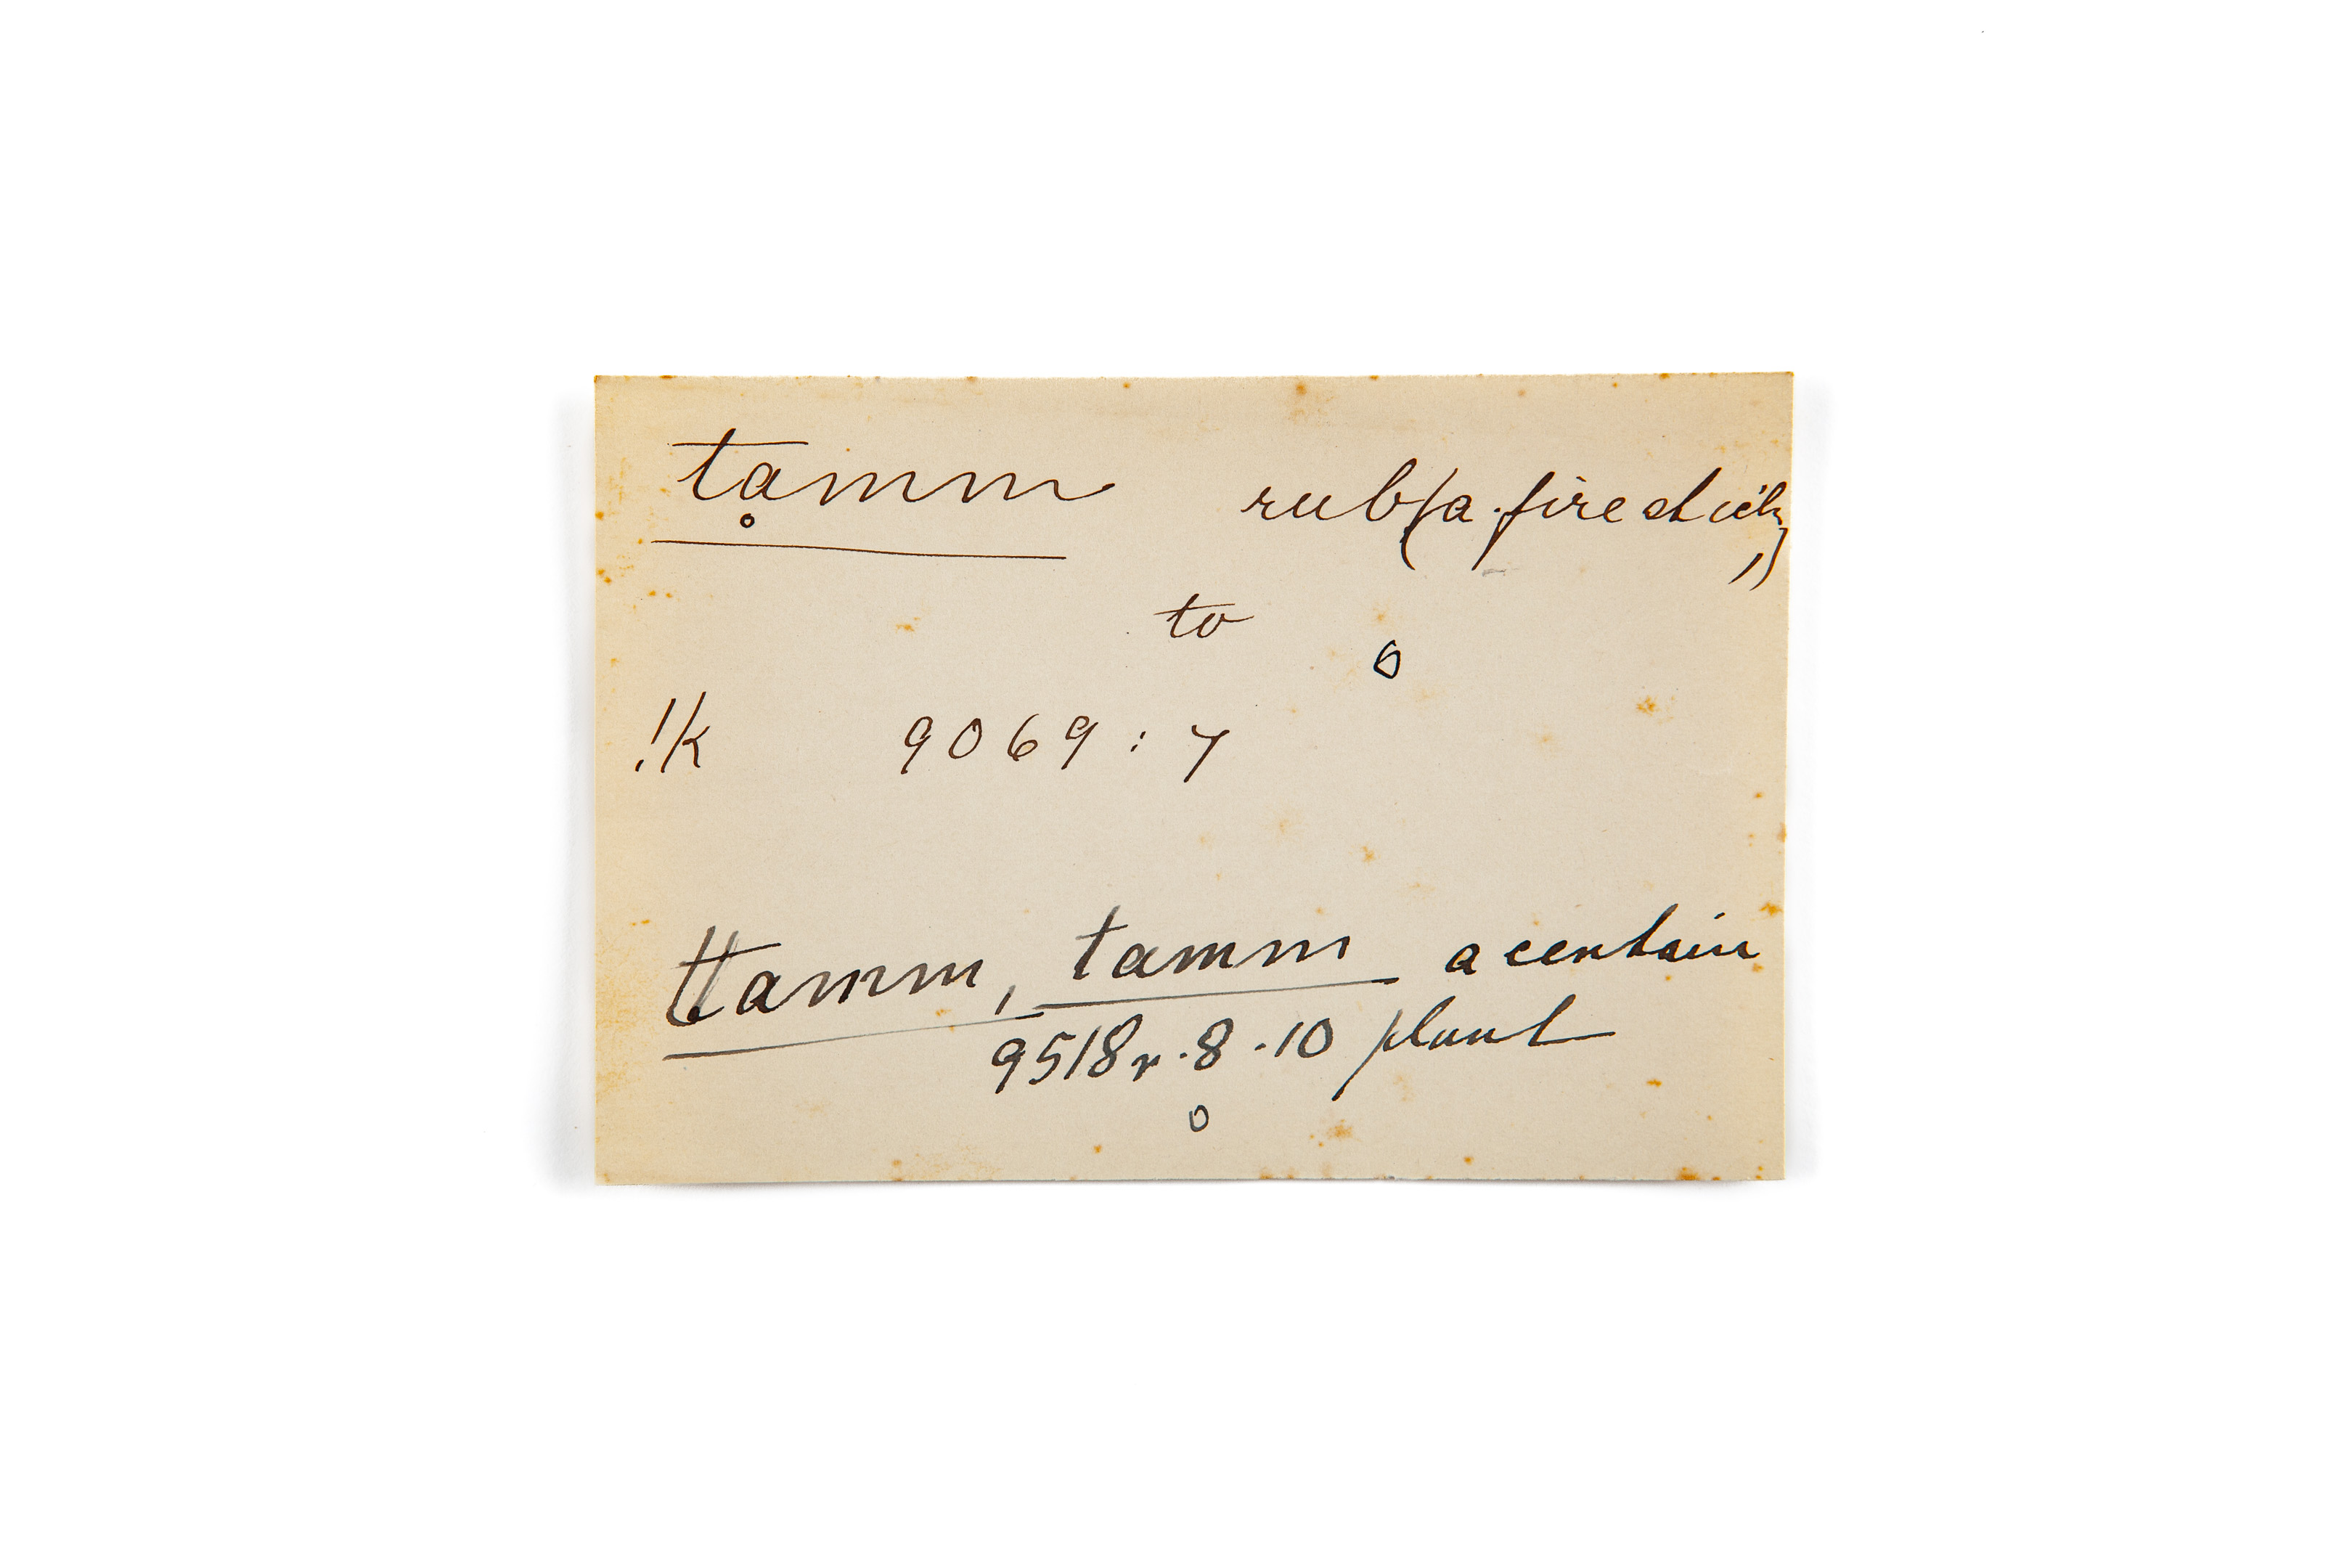 tḁmm rub (a fire stick,)
to
!k 9069 : 7
ttamm, tamm a certain
9518r. 8 - 10 plant